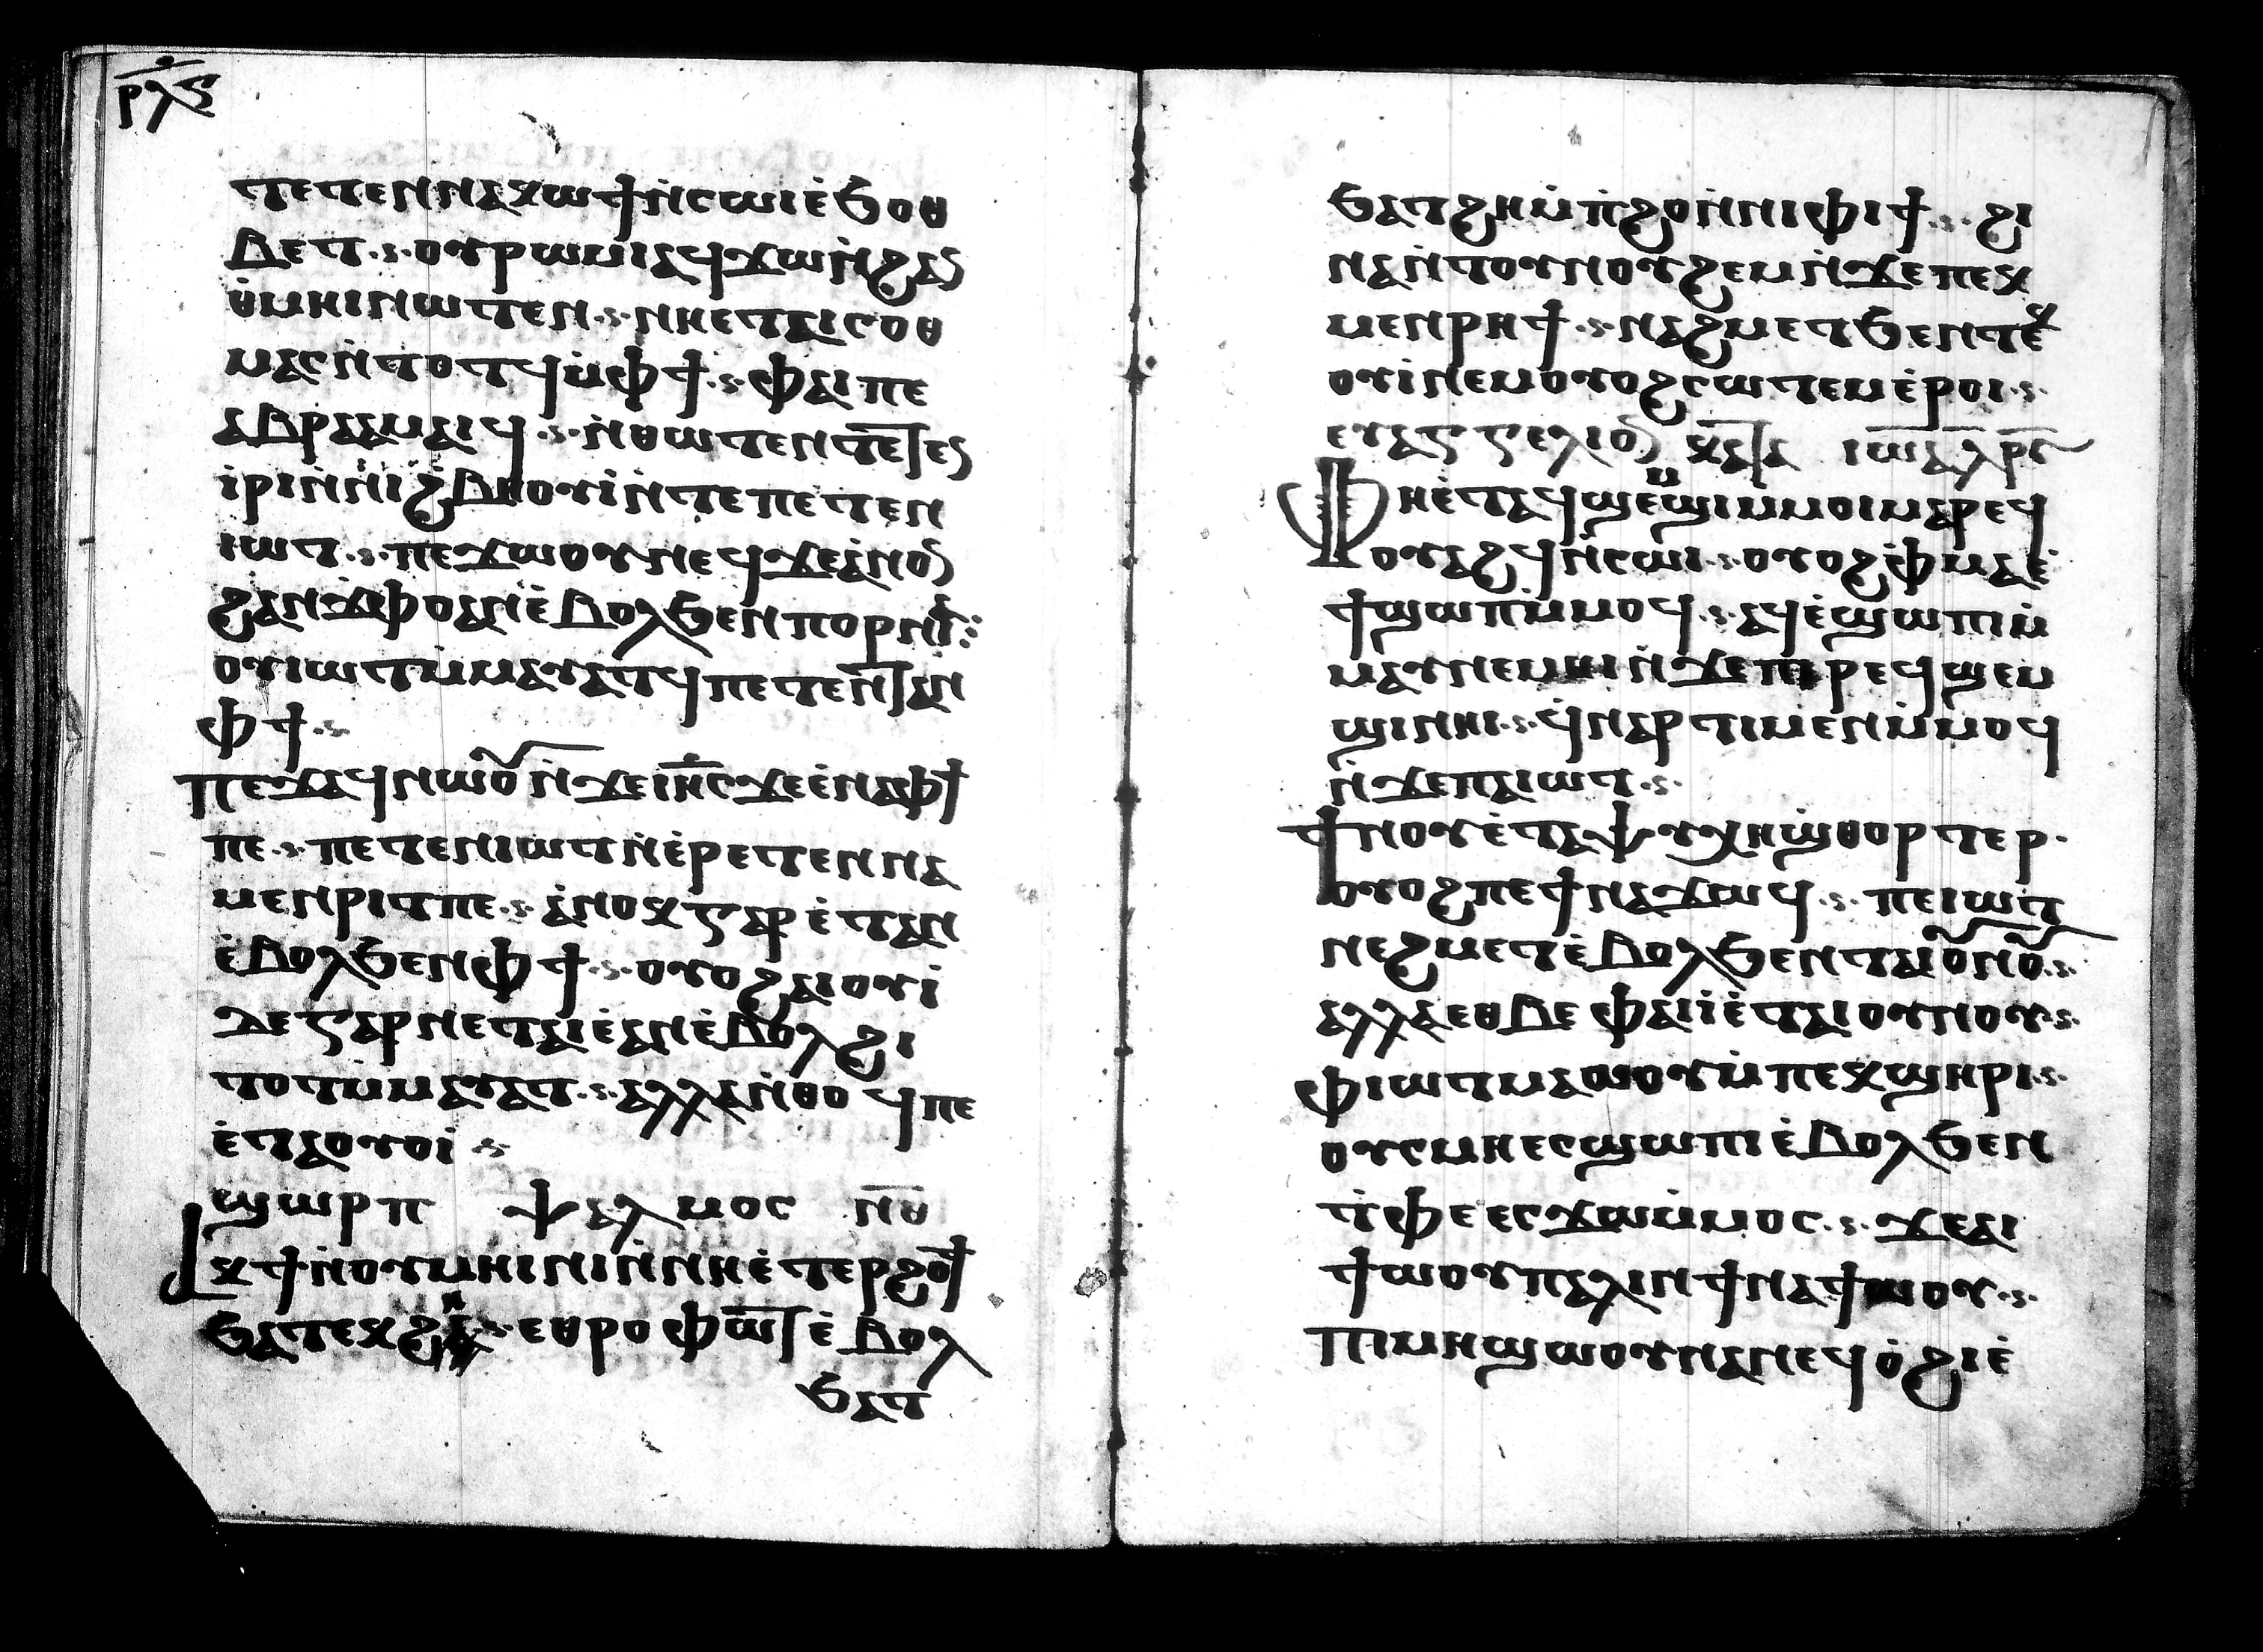 ⲣⲗⲋ
ⲧⲉⲧⲉⲛⲛⲁⲕⲱϯⲛ̇ⲥⲱⲓⲉ̇ϧⲟⲑ
ⲃⲉⲧ ⲟⲩⲣⲱⲙⲓⲁϥϫⲱⲛ̇ϩⲁⲥ
ⲑ̇ⲙⲏⲓⲛⲱⲧⲉⲛ ⲛⲏⲉⲧⲁⲓⲥⲟⲑ
ⲙⲁⲥⲛ̇ⲧⲟⲧϥⲙ̇ⲫϯ ⲫⲁⲓⲡⲉ
ⲁⲃⲣⲁⲁⲙⲁⲓϥ ⲛ̇ⲑⲱⲧⲉⲛ
ⲓ̇ⲣⲓⲛ̇ⲛⲓϩ̇ⲃⲏⲟⲩⲓ̇ⲛ̇ⲧⲉⲡⲉⲧⲉⲛ
ⲓⲱⲧ ⲡⲉϫⲱⲟⲩⲛⲉϥϫⲉⲁ̇ⲛⲟⲛ
ϩⲁⲛϫⲫⲟⲁⲛⲉ̇ⲃⲟⲗϧⲉⲛⲡⲟⲣⲛⲓⲁ
ⲟⲩⲓⲱⲧⲙ̇ⲙⲁⲩⲁⲧϥⲡⲉⲧⲉⲛⲧⲁⲛ
ⲫϯ
ⲡⲉϫⲁϥⲛⲱⲟⲩⲛ̇ϫⲉⲓⲏⲥϫⲉⲉ̇ⲛⲁⲫϯ
ⲡⲉ ⲡⲉⲧⲉⲛⲓⲱⲧⲛ̇ⲉ̇ⲣⲉⲧⲉⲛⲛⲁ
ⲙⲉⲛⲣⲓⲧⲡⲉ ⲁ̇ⲛⲟⲕⲅⲁⲣⲉ̇ⲧⲁⲛ
ⲉ̇ⲃⲟⲗϧⲉⲛⲫϯ ⲟⲩⲟϩⲁⲓⲟⲩⲓ̇
ϫⲉⲅⲁⲣⲛⲉⲧⲁⲓⲉ̇ⲁⲛⲉ̇ⲃⲟⲗϩⲓ
ⲧⲟⲧⲙ̇ⲙⲁⲩⲁⲧ ⲁⲗⲗⲁⲛ̇ⲑⲟϥⲡⲉ
ⲉ̇ⲧⲁⲟⲩⲟⲓ̇
ϣⲱⲣⲡ ⲯⲁⲗⲙⲟⲥ ⲛ̅ⲑ̅
ⲁⲕϯⲛ̇ⲟⲩⲙⲏⲓⲛⲓⲛ̇ⲛⲏⲉ̇ⲧⲉⲣϩⲟϯ
ϧⲁⲧⲉⲕϩⲏ ⲉⲑⲣⲟⲩⲫⲱⲧ ⲉ̇ⲃⲟⲗ
ϧⲁⲧ
ϧⲁⲧϩⲏⲙ̇ⲡ̇ϩⲟⲛ̇ⲛⲓⲫⲓϯ ϩⲓ
ⲛⲁⲛ̇ⲧⲟⲩⲛⲟⲩϩⲉⲙⲛ̇ϫⲉⲡⲉⲕ
ⲙⲉⲛⲣⲏϯ ⲛⲁϩⲙⲉⲧϧⲉⲛⲧⲉⲕ
ⲟⲩⲓ̇ⲛⲉⲙⲟⲩⲟϩⲥⲱⲧⲉⲙⲉ̇ⲣⲟⲓ
ⲉⲩⲁⲅⲅⲉⲗⲓⲟⲛ ⲕⲁⲧⲁ ⲓⲱⲁ ⲗⲣⲥ
ⲫⲏⲉ̇ⲧⲁϥϣⲉⲙϣⲓⲙⲙⲟⲓⲙⲁⲣⲉϥ
ⲟⲩⲁϩϥⲛ̇ⲥⲱⲓ ⲟⲩⲟϩⲫ̇ⲙⲁⲉ̇
ϯϣⲱⲡⲙ̇ⲙⲟϥ ⲁϥⲉ̇ϣⲱⲡⲓⲙ̇
ⲙⲁⲩⲛⲉⲙⲏⲓⲛ̇ϫⲉⲡⲓⲣⲉϥϣⲉⲙ
ϣⲓⲛⲏⲓ ϥ̇ⲛⲁⲣⲧⲓⲙⲉⲛⲙ̇ⲙⲟϥ
ⲛ̇ϫⲉⲡⲁⲓⲱⲧ
ϯⲛⲟⲩⲉ̇ⲧⲁⲯⲩⲭⲏϣ̇ⲑⲟⲣⲧⲉⲣ
ⲟⲩⲟϩⲡⲉϯⲛⲁϫⲱϥ ⲡⲉⲓⲱⲧ
ⲛⲉϩⲙⲉⲧⲉ̇ⲃⲟⲗϧⲉⲛⲧⲁⲓⲟⲩⲛⲟⲩ
ⲁⲗⲗⲁⲉⲑⲃⲉⲫⲁⲓⲓ̇ⲉ̇ⲧⲁⲓⲟⲩⲛⲟⲩ
ⲫⲓⲱⲧⲙⲁⲱⲟⲩⲙ̇ⲡⲉⲕϣⲏⲣⲓ
ⲟⲩⲥⲙⲏⲉⲥϣⲱⲡⲓⲉ̇ⲃⲟⲗϧⲉⲛ
ⲧ̇ⲫⲉⲉⲥϫⲱⲙ̇ⲙⲟⲥ ϫⲉⲁⲓ
ϯⲱⲟⲩⲡⲁⲗⲓⲛϯⲛⲁϯⲱⲟⲩ
ⲡⲓⲙⲏϣⲱⲟⲩⲛⲁⲛⲉϥⲟ̇ϩⲓⲉ̇